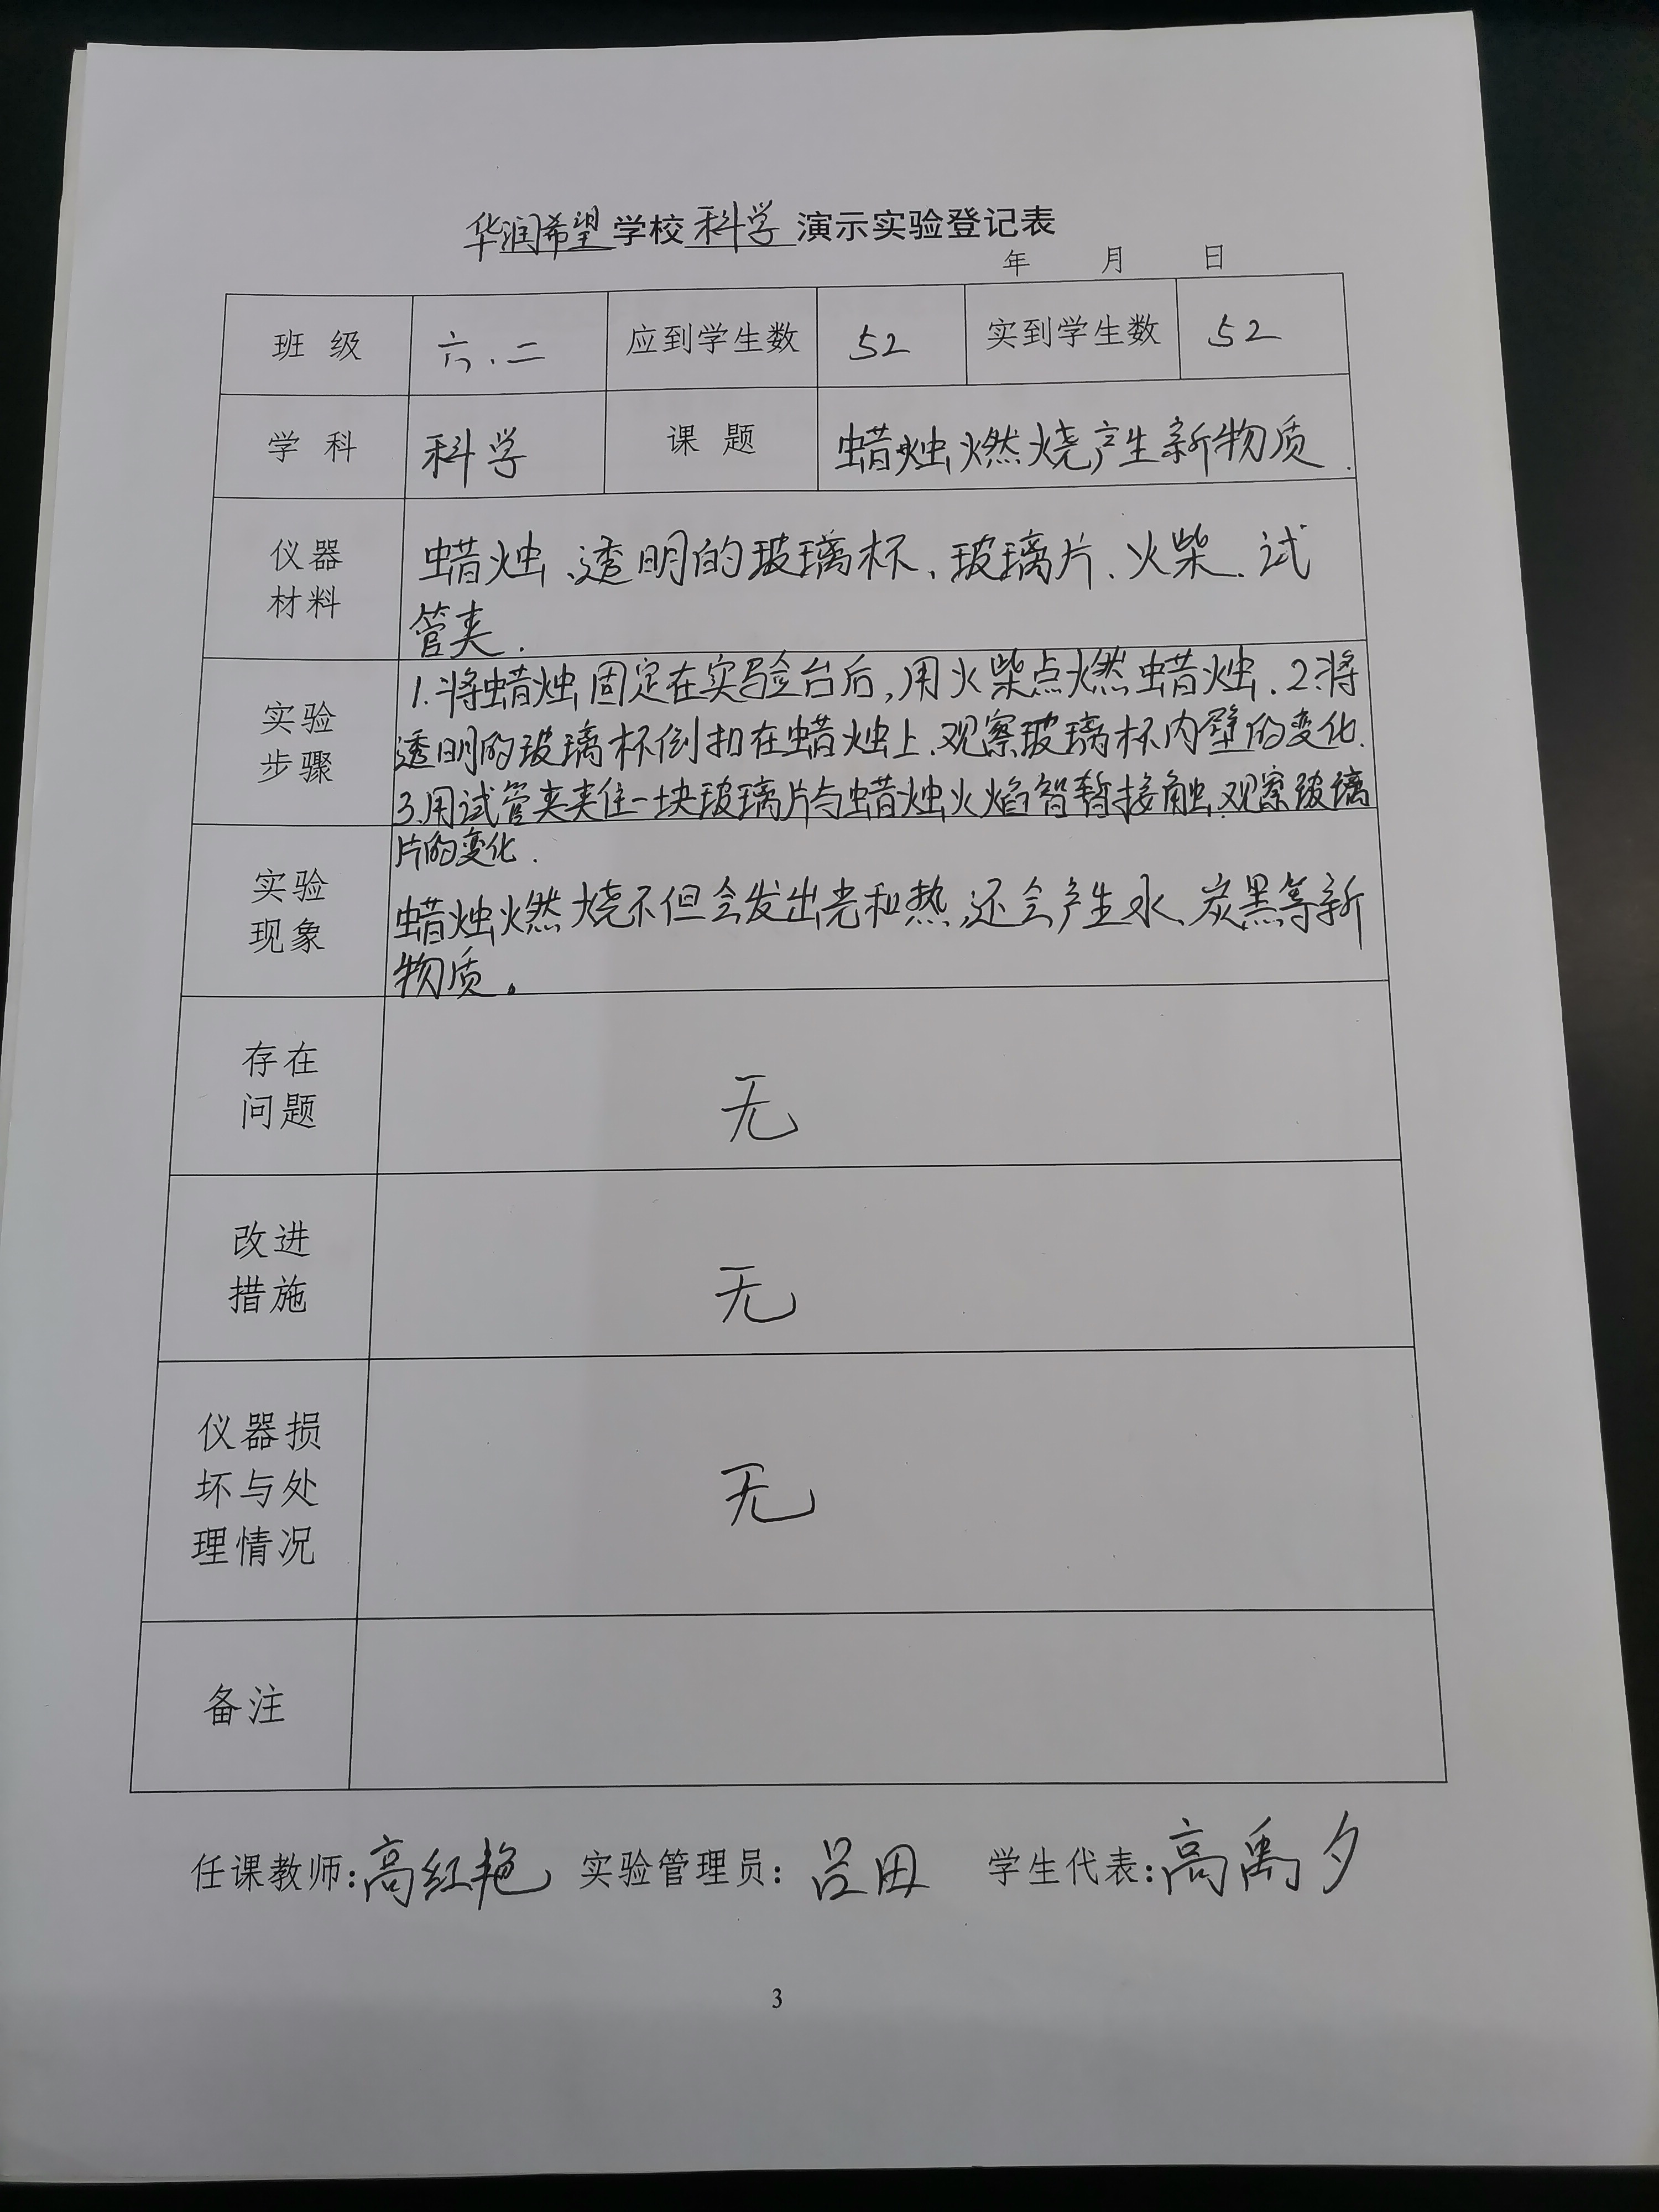 华润希望学校科学演示实验登记表
年 月 日
班 级 六.二 应到学生数 52 实到学生数 52
学 科 科学 课 题 蜡烛燃烧产生新物质.
仪器
材料
蜡烛、透明的玻璃杯、玻璃片、火柴.试
管夹.
实验
步骤
1.将蜡烛固定在实验台后,用火柴点燃蜡烛.2.将
透明的玻璃杯倒扣在蜡烛上.观察玻璃杯内壁的变化.
3.用试管夹夹住一块玻璃片与蜡烛火焰暂接触.观察玻璃
片的变化.
实验
现象
蜡烛燃烧不但会发出光和热,还会产生水、炭黑等新
物质。
存在
问题
无
改进
措施
无
仪器损
坏与处
理情况
无
备注
任课教师:高红艳 实验管理员:吕田 学生代表:高禹夕
3